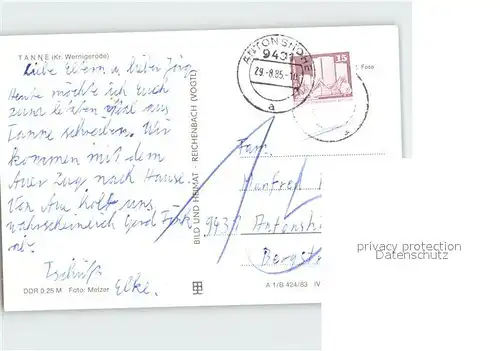 TANNE (Kr. Wernigerode)
Liebe Eltern u. lieber Jörg,
Heute möchte ich euch
zum letzten Mal aus
Tanne schreiben. Wir
kommen mit dem
Auer Zug nach Hause.
Von Aue holt uns
wahrscheinlich Gerd Funk
ab.
Tschüß
Elke.
DDR 0,25 M Foto: Melzer
BILD UND HEIMAT · REICHENBACH (VOGTL)
ANTONSHÖHE
9431
29.-8.85.-10
a
15
Foto
Fam.
Manfred
9431 Antonsh
Bergstr
A 1/B 424/83 IV
privacy protection
Datenschutz